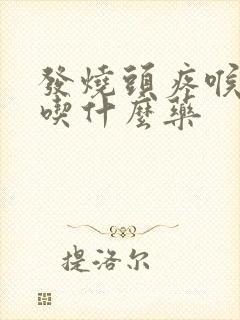 發燒頭疼喉
喫什麼藥
提洛尔